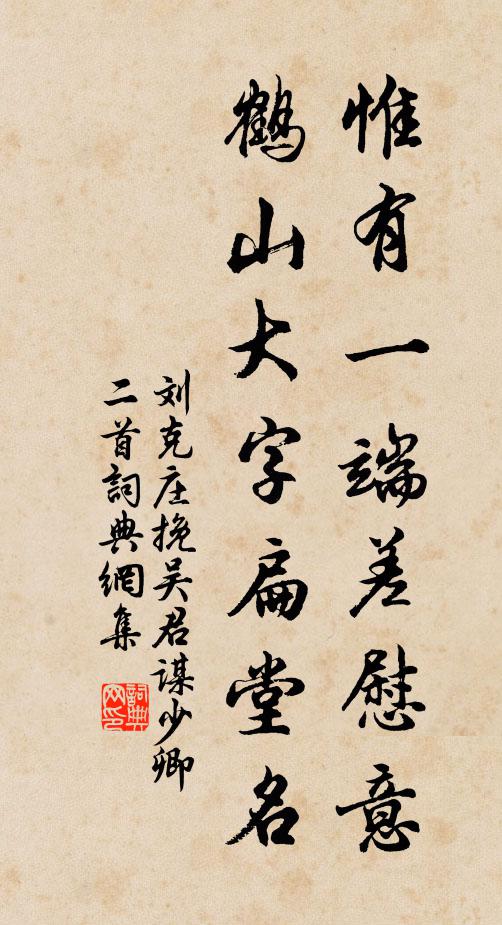 惟有一端差慰意
鶴山大字扁堂名
刘克庄挽吴君谋少卿
二首詞典網集
詞典网印